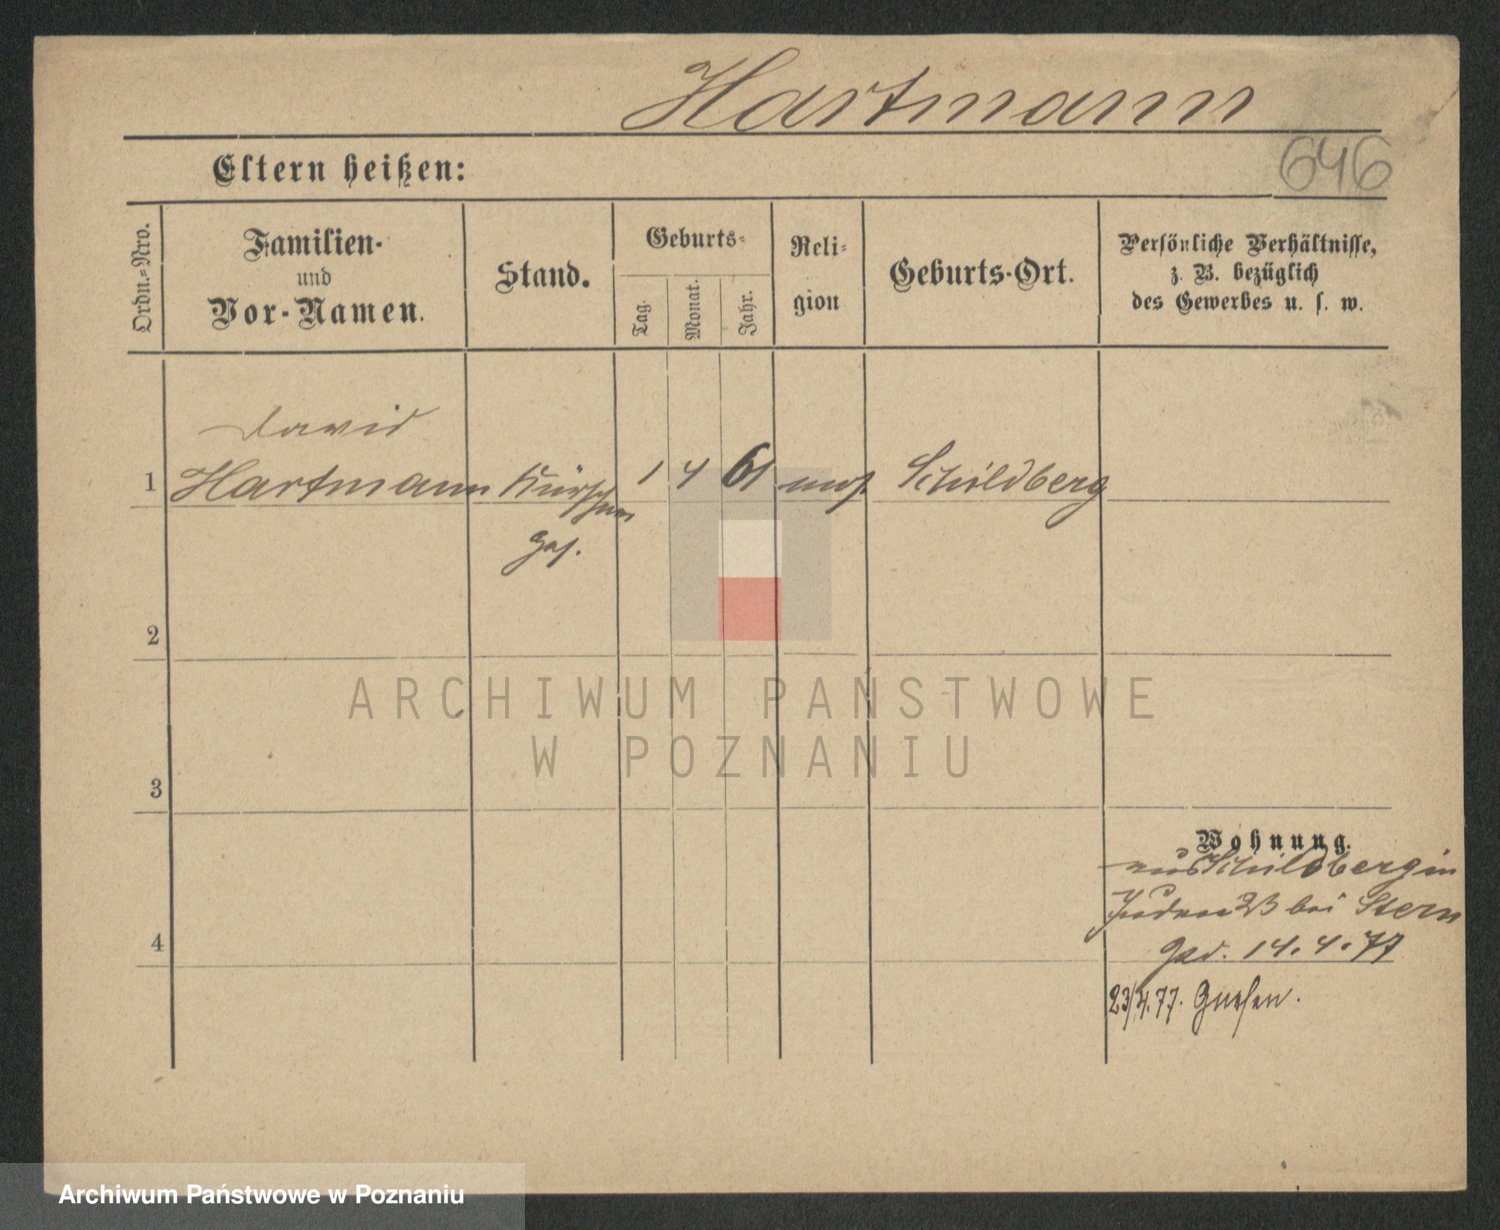 Hartmann
646
Eltern heißen:
Ordn.-Nro.
Familien-
und
Vor-Namen.
Stand.
Geburts-
Tag.
Monat.
Jahr.
Reli-
gion
Geburts-Ort.
Persönliche Verhältnisse,
z. B. bezüglich
des Gewerbes u. s. w.
David
1 Hartmann Kürschner 1 4 61 mos. Schildberg
Ges.
2
ARCHIWUM PAŃSTWOWE
W POZNANIU
3
Wohnung.
aus Schildberg in
Juden 23 bei Stern
4
14.4.77
23/4.77. Gnesen.
Archiwum Państwowe w Poznaniu